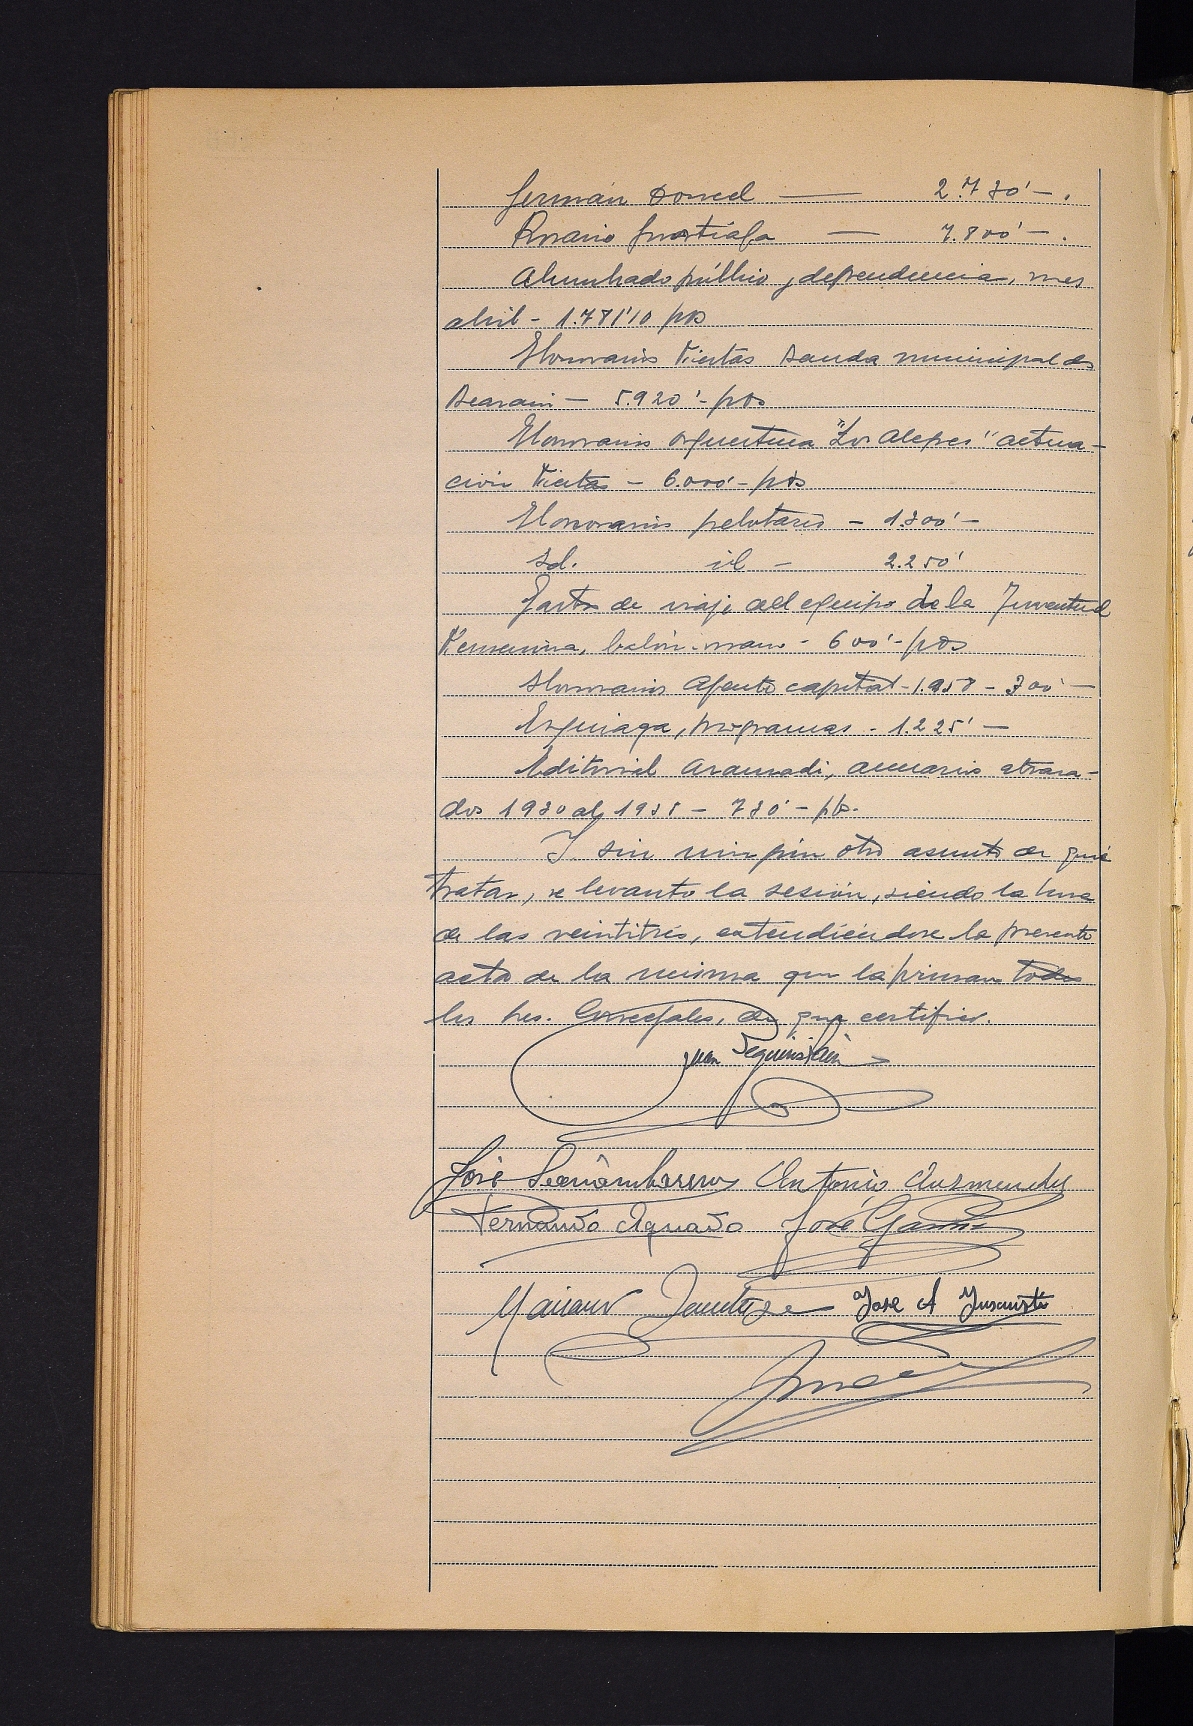 Germán Doncel — 2.730'—.
Rosario — 7.800'—.
Alumbrado público y dependencia, mes
abril - 1.781'10 pts
Honorarios Fiestas Banda municipal de
Beasain — 5.920'- pts
Honorarios orquestina "Los Alegres" actua-
ción Fiestas — 6.000'- pts
Honorarios pelotaris — 1.300'—
Id. id — 2.250'
Gastos de viaje del equipo de la Juventud
Femenina, balón-mano - 600'- pts
Honorarios Agente capital - 1.958 - 300'—
Eguiaga, programas - 1.225'—
Editorial Aramadi, anuario atrasa-
dos 1930 al 1935 — 730'- pts.
Y sin ningún otro asunto de qué
tratar, se levanto la sesión, siendo la hora
de las veintitrés, extendiéndose la presente
acta de la misma que la firman todos
los Sres. Concejales, de que certifico.
Juan
José Antonio Auzmendi
Fernando Aguado José
Mariano José A